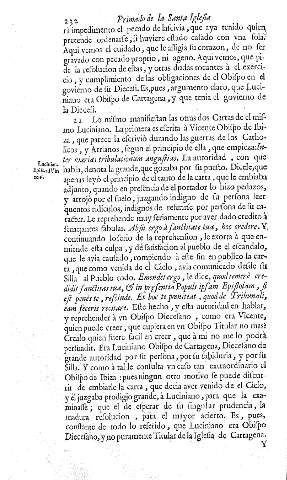 232 Primado de la Santa Iglesia
rà impedimento el pecado de lascivia, que aya tenido quien
pretende ordenarse, si huviere estado casado con vna sola.
Aqui vemos el cuidado, que le afligia su corazon, de no ser
gravado con pecado proprio, ni ageno. Aqui vemos, que pi-
de la resolucion de ellas, y otras dudas tocantes à el exerci-
cio, y cumplimiento de las obligaciones de el Obispo en el
govierno de su Diecesi. Es, pues, argumento claro, que Luci-
niano era Obispo de Cartagena, y que tenia el govierno de
la Diecesi.
22 Lo mismo manifiestan las otras dos Cartas de el mis-
mo Luciniano. La primera escrita à Vicente Obispo de Ibi-
za, que parece la escrivió durante las guerras de los Catho-
licos, y Arrianos, segun el principio de ella, que empieza:
varias tribulationum angustias. La autoridad, con que
habla, denota la grande, que gozaba por su puesto. Duelese, que
apenas leyò el principio de la carta, que le embiaba
adjunta, quando en presencia de el portador la hizo pedazos,
y arrojò por el suelo, juzgando indigno de su persona leer
quentos ridiculos, indignos de referirse por persona de su ca-
racter. Le reprehende muy seriamente por aver dado credito à
semejantes fabulas. Absit ergo à sanctitate tua, hoc credere. Y
continuando lo serio de la reprehension, le exorta à que en-
miende esta culpa, y desengañe al pueblo de el escandalo,
que le avia causado, rompiendo à este fin en publico la car-
ta, que como venida de el Cielo, avia comunicado desde su
Silla al Pueblo todo. Emendet ergo, le dice, quod temerè cre-
didit sanctitas tua, & in præsentia Populi ipsam Epistolam, si
est penès te, rescinde. Et hoc te pœniteat, quod de Tribunali,
eam feceris recitare. Este hecho, y esta autoridad en hablar,
y reprehender à vn Obispo Diecesano, como era Vicente,
quien puede creer, que cupiera en vn Obispo Titular no mas?
Crealo quien fuere facil en creer, que à mi no me lo podrà
persuadir. Era Luciniano Obispo de Cartagena, Diecesano de
grande autoridad por su persona, por su sabiduria, y por su
Silla. Y como à tal le consulta vn caso tan extraordinario el
Obispo de Ibiza: pues ningun otro motivo se puede discur-
rir de embiarle la carta, que decia aver venido de el Cielo,
y èl juzgaba prodigio grande, à Luciniano, para que la exa-
minasse; que el de esperar de su singular prudencia, la
madura resolucion, para el mayor acierto. Es, pues,
constante de todo lo referido, que Luciniano era Obispo
Diecesano, y no puramente Titular de la Iglesia de Cartagena.
Y